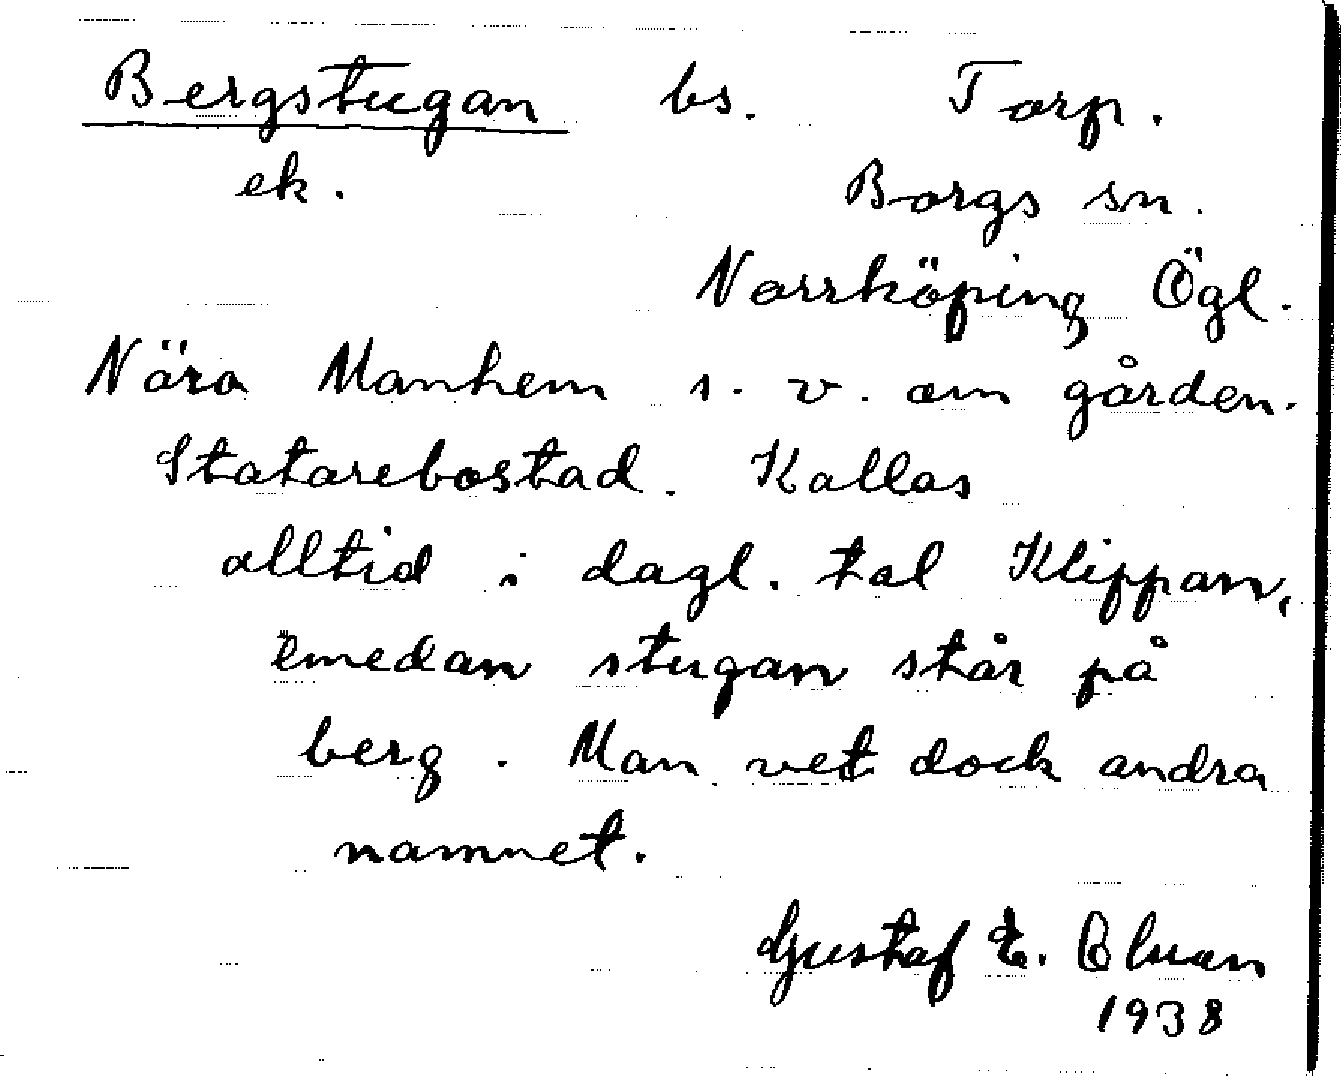 Bergstugan bs. Torp.
ek. Borgs sn.
Norrköping Ögl.
Nära Manhem s.v. om gården.
Statarebostad. Kallas
alltid i dagl. tal Klippan,
emedan stugan står på
berg. Man vet dock andra
namnet.
Gustaf E.
1938